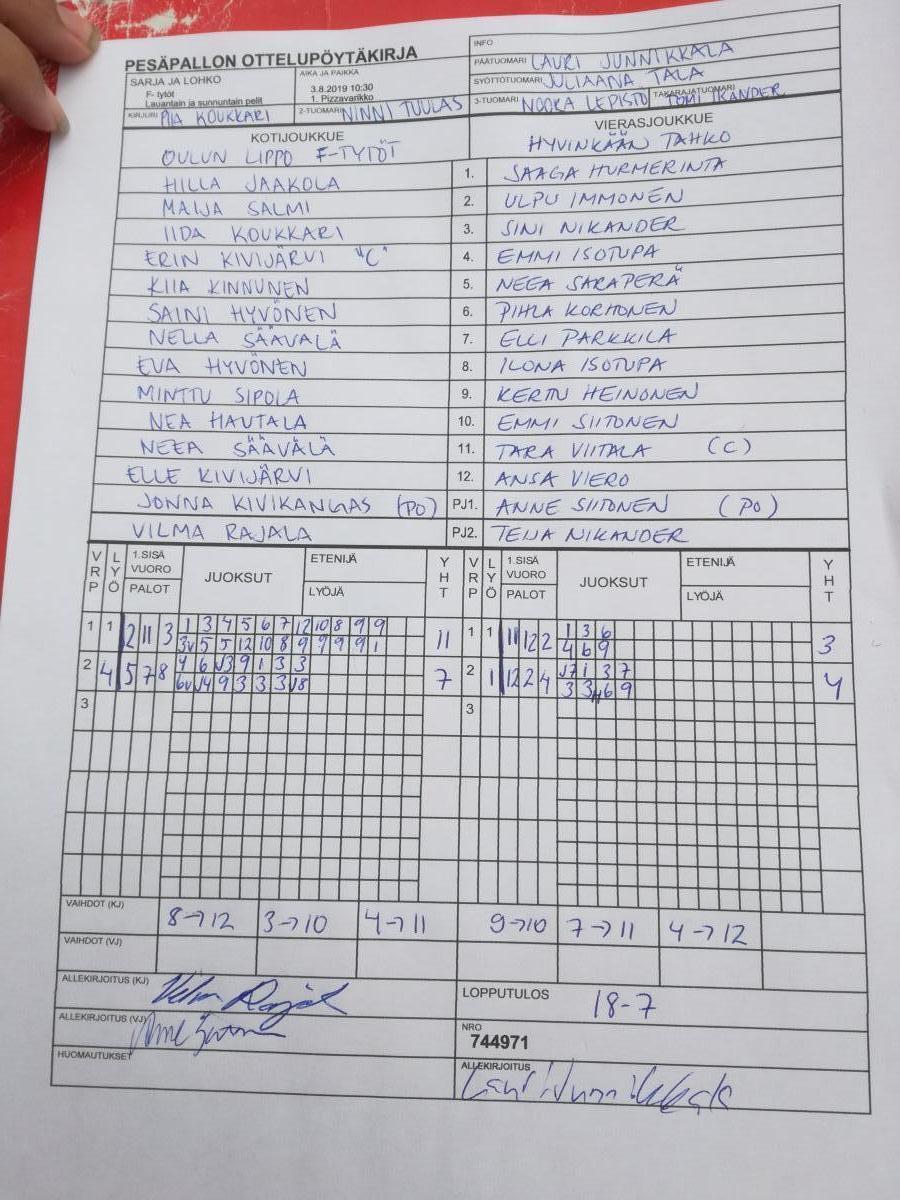 PESÄPALLON OTTELUPÖYTÄKIRJA
INFO
SARJA JA LOHKO
F- tytöt
Lauantain ja sunnuntain pelit
AIKA JA PAIKKA
3.8.2019 10:30
1. Pizzavarikko
PÄÄTUOMARI LAURI JUNNIKKALA
SYÖTTÖTUOMARI JULIAANA TALA
KIRJURI PIA KOUKKARI 2-TUOMARI NINNI TUULAS 3-TUOMARI NOORA LEPISTÖ TAKARAJATUOMARI TOMI IKANDER
KOTIJOUKKUE VIERASJOUKKUE
OULUN LIPPO F-TYTÖT HYVINKÄÄN TAHKO
HILLA JAAKOLA 1. SAAGA HURMERINTA
MAIJA SALMI 2. ULPU IMMONEN
IIDA KOUKKARI 3. SINI NIKANDER
ERIN KIVIJÄRVI "C" 4. EMMI ISOTUPA
KIIA KINNUNEN 5. NEEA SARAPERÄ
SAINI HYVÖNEN 6. PIHLA KORHONEN
NELLA SÄÄVÄLÄ 7. ELLI PARKKILA
EVA HYVÖNEN 8. ILONA ISOTUPA
MINTTU SIPOLA 9. KERTTU HEINONEN
NEA HAUTALA 10. EMMI SIITONEN
NEEA SÄÄVÄLÄ 11. TARA VIITALA (C)
ELLE KIVIJÄRVI 12. ANSA VIERO
JONNA KIVIKANGAS (PO) PJ1. ANNE SIITONEN (PO)
VILMA RAJALA PJ2. TEIJA NIKANDER
VRP LYÖ 1.SISÄ VUORO PALOT JUOKSUT ETENIJÄ LYÖJÄ YHT VRP LYÖ 1.SISÄ VUORO PALOT JUOKSUT ETENIJÄ LYÖJÄ YHT
1 1 2 11 3 1 3 4 5 6 7 12 10 8 9 9 11 1 1 11 12 2 1 3 6 3
3v 5 5 12 10 8 9 9 9 9 1 4 6 9
2 4 5 7 8 4 6 J3 9 1 3 3 7 2 1 12 2 4 J7 1 3 7 4
6v J4 9 3 3 3 J8 3 3 6 9
3 3
VAIHDOT (KJ) 8→12 3→10 4→11 9→10 7→11 4→12
VAIHDOT (VJ)
ALLEKIRJOITUS (KJ) LOPPUTULOS 18-7
ALLEKIRJOITUS (VJ) NRO
744971
HUOMAUTUKSET ALLEKIRJOITUS
Lauri Junnikkala